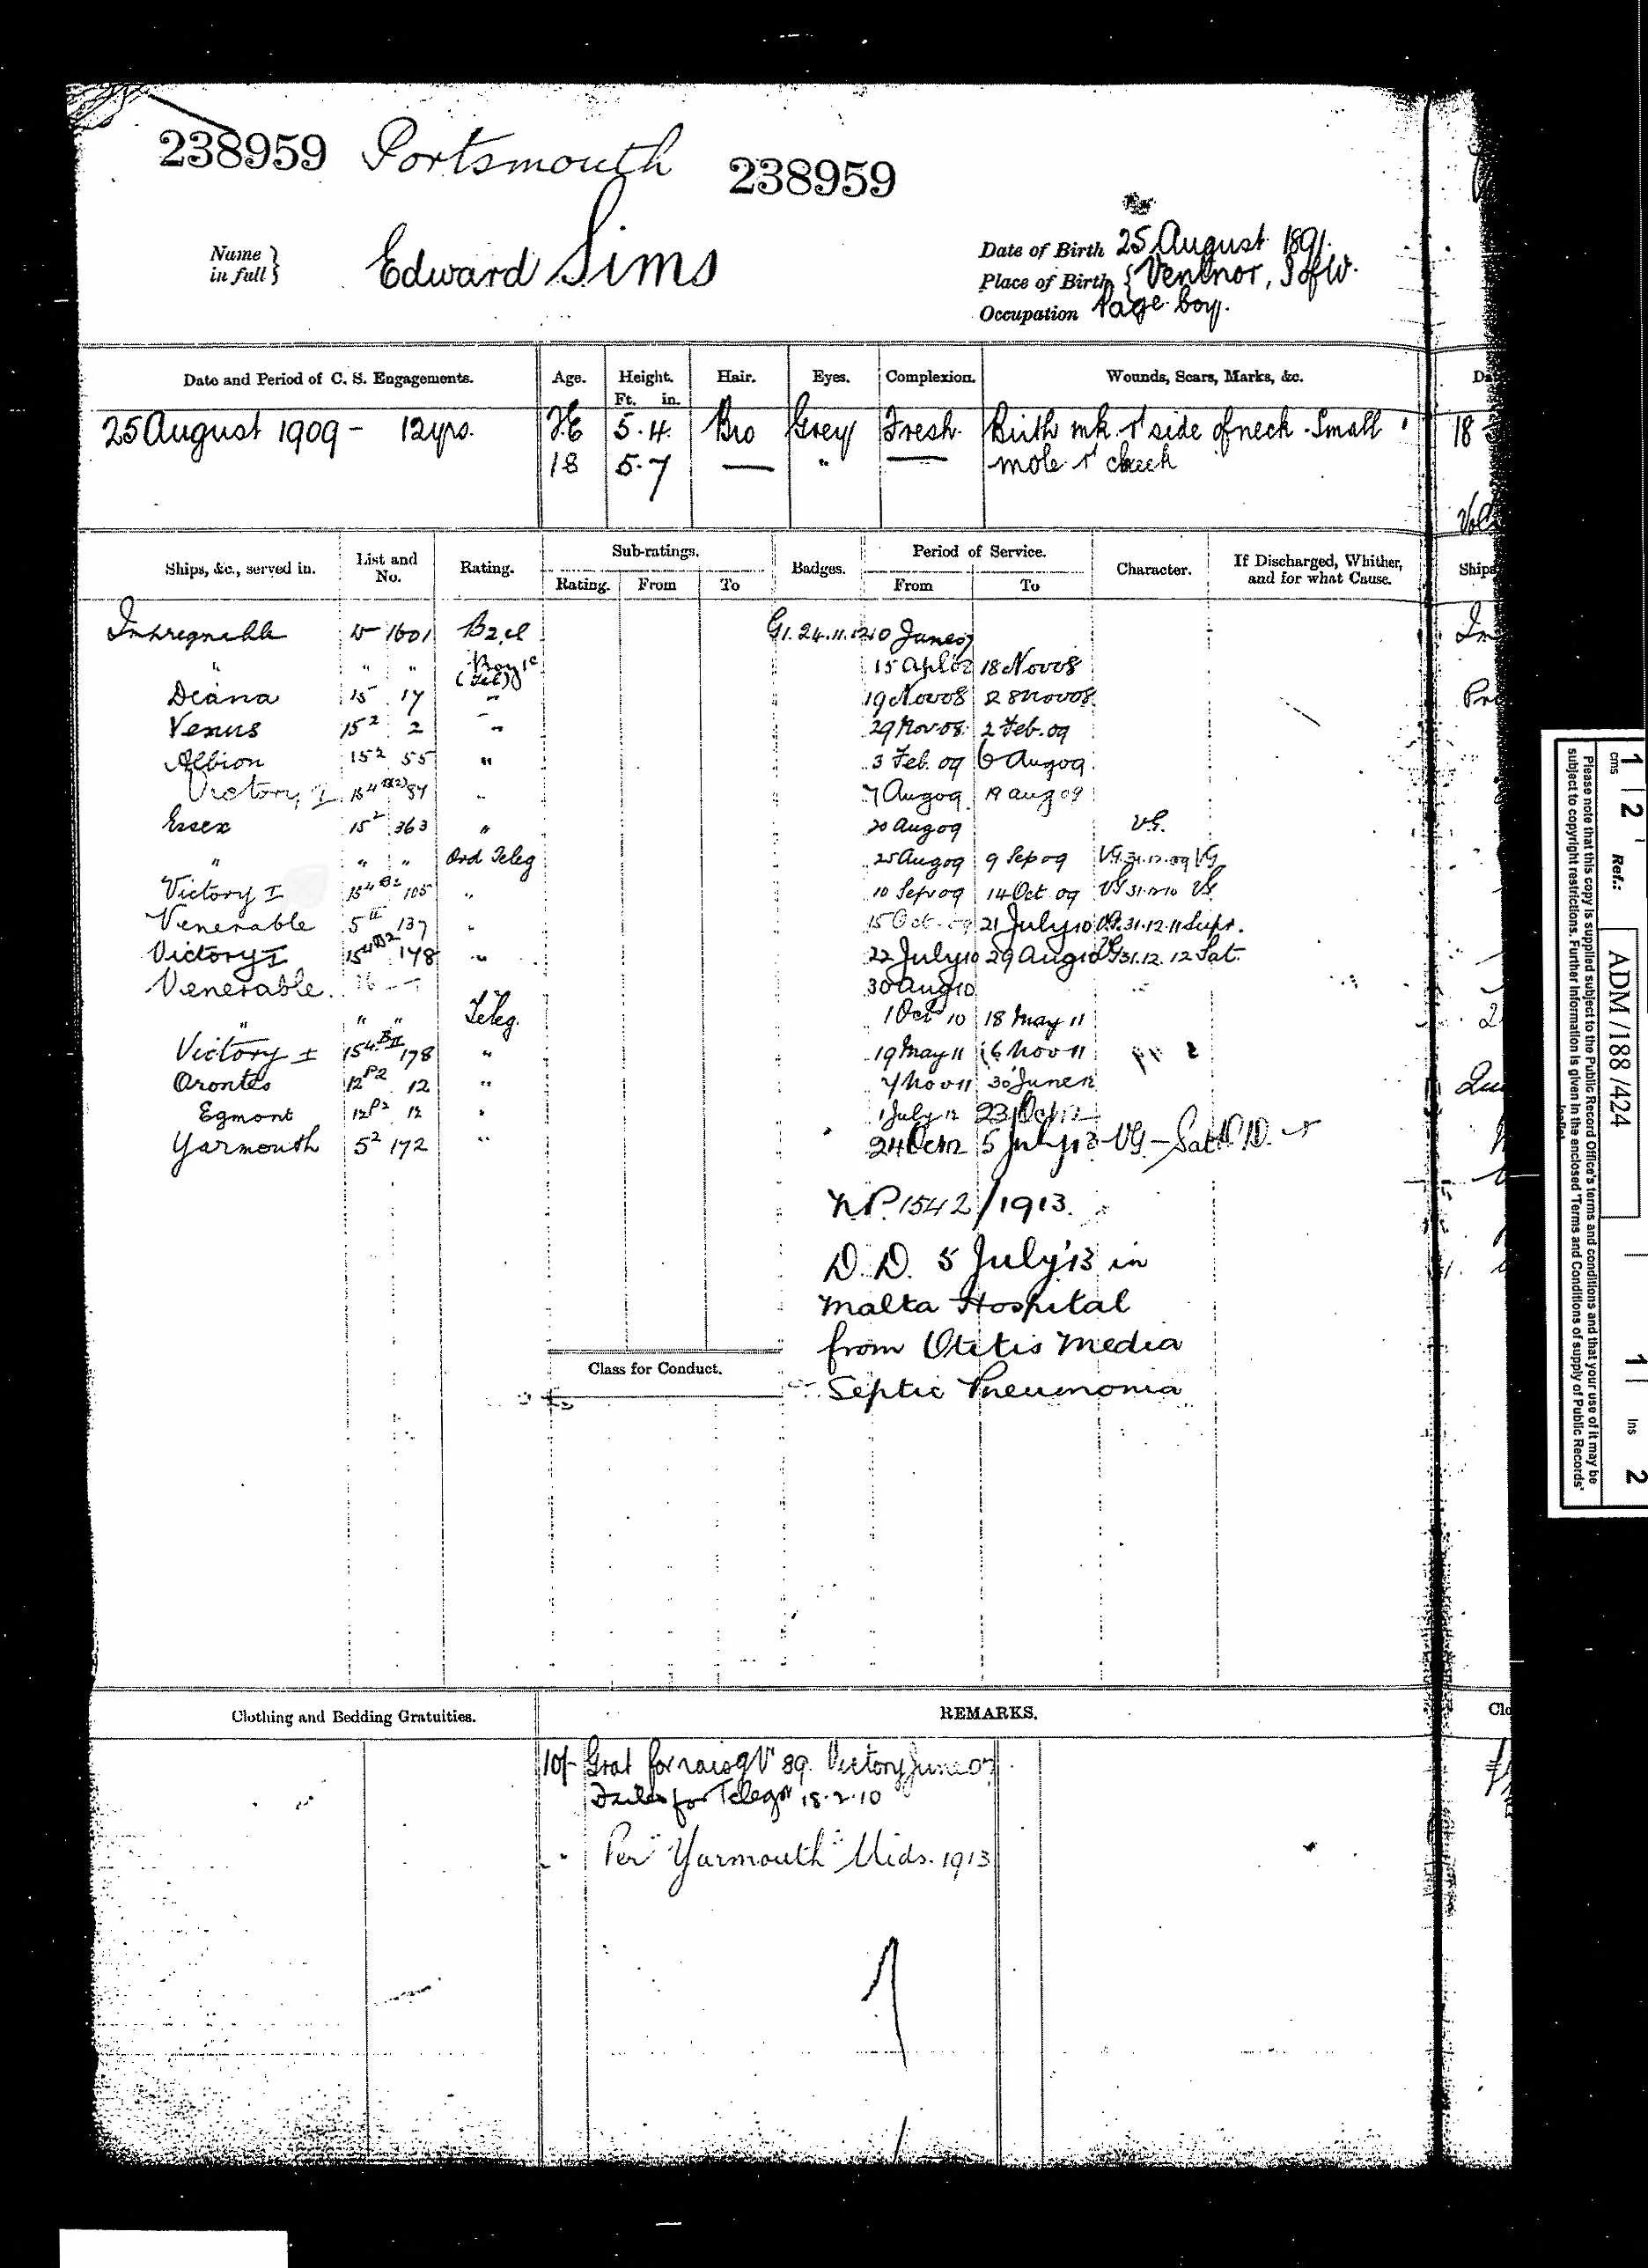 238959 Portsmouth 238959
Name in full } Edward Sims
Date of Birth 25 August 1891.
Place of Birth { Ventnor, I of W.
Occupation Page boy.
Date and Period of C. S. Engagements. Age. Height. Ft. in. Hair. Eyes. Complexion. Wounds, Scars, Marks, &c.
25 August 1909 - 12 yrs. 5.4. Bro Grey Fresh. Birth mk. rt side of neck - Small
18 5.7 — " — mole rt cheek
Ships, &c., served in. List and No. Rating. Sub-ratings. Rating. From To Badges. Period of Service. From To Character. If Discharged, Whither, and for what Cause.
Impregnable 15 1601 B2.cl G1. 24.11.12 10 June 07
" " " Boy 1c (Tel) 15 Apl 08 18 Nov 08
Diana 15 17 " 19 Nov 08 28 Nov 08
Venus 15 2 2 " 29 Nov 08 2 Feb. 09
Albion 15 2 55 " 3 Feb. 09 6 Aug 09
Victory I 15 4 B(2) 87 " 7 Aug 09 19 Aug 09
Essex 15 2 363 " 20 Aug 09 V.G.
" " " Ord Teleg 25 Aug 09 9 Sep 09 V.G. 31.12.09 VG
Victory I 15 4 B2 105 " 10 Sep 09 14 Oct 09 VG 31.12.10 VG
Venerable 5 II 137 " 15 Oct 09 21 July 10 VG. 31.12.11 Supr.
Victory I 15 4 B2 148 " 22 July 10 29 Aug 10 VG 31.12.12 Sat.
Venerable 30 Aug 10
" " " Teleg. 1 Oct 10 18 May 11
Victory I 15 4 B II 178 " 19 May 11 6 Nov 11
Orontes 12 P2 12 " 7 Nov 11 30 June 12
Egmont 12 P2 12 " 1 July 12 23 Oct 12
Yarmouth 5 2 172 " 24 Oct 12 5 July 13 VG - Sat D.D.
N.P. 1542/1913.
D.D. 5 July '13 in
Malta Hospital
from Otitis Media
Septic Pneumonia
Class for Conduct.
Clothing and Bedding Gratuities. REMARKS.
10/- Grat for raisg V 89. Victory June 07
Failed for Telegst 18.2.10
Per "Yarmouth" Mids. 1913
1 cms 2
Ref.: ADM/188/424
1 Ins 2
Please note that this copy is supplied subject to the Public Record Office's terms and conditions and that your use of it may be
subject to copyright restrictions. Further information is given in the enclosed 'Terms and Conditions of supply of Public Records'
leaflet
18
Ships